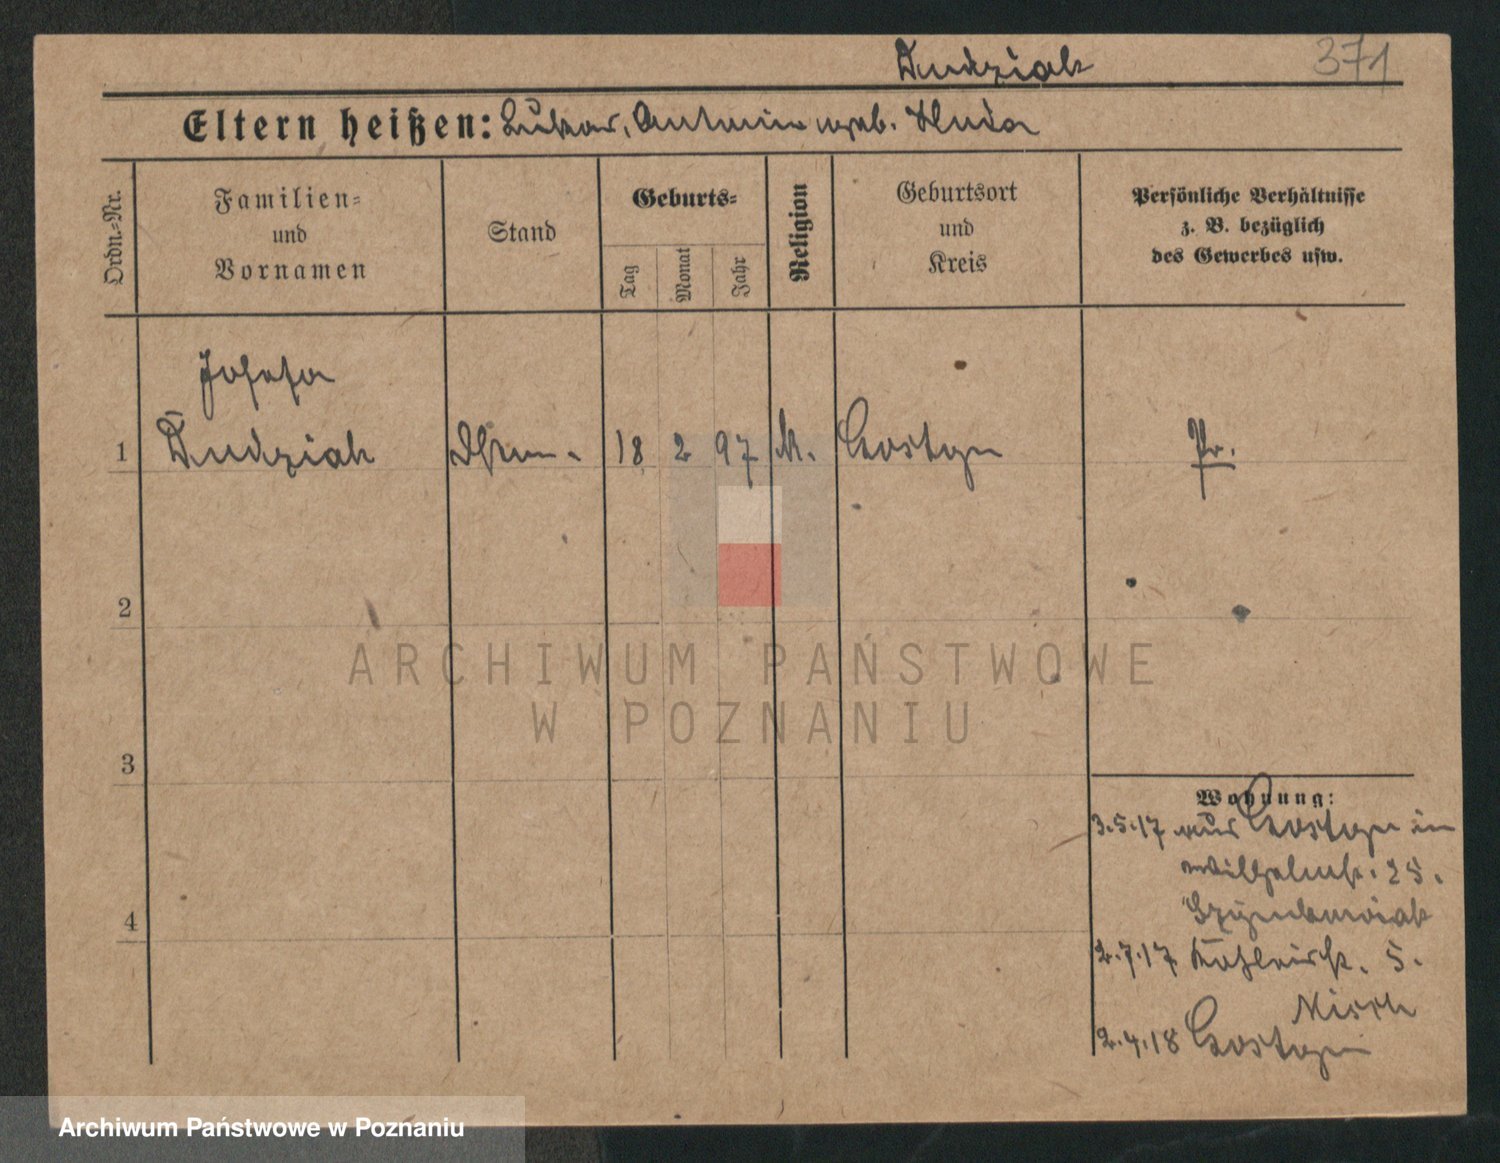 Dudziak 371
Eltern heißen: Lukas, Antonie geb. Huda
Ordn.-Nr.
Familien-
und
Vornamen
Stand
Geburts-
Tag
Monat
Jahr
Religion
Geburtsort
und
Kreis
Persönliche Verhältnisse
z. B. bezüglich
des Gewerbes usw.
Josefa
1 Dudziak 18 2 97 k. Gostyn Pr.
2
3
4
Wohnung:
3.5.17 aus Gostyn in
Wilhelmstr. 25.
2.7.17 5.
2.4.18 Gostyn
ARCHIWUM PAŃSTWOWE
W POZNANIU
Archiwum Państwowe w Poznaniu